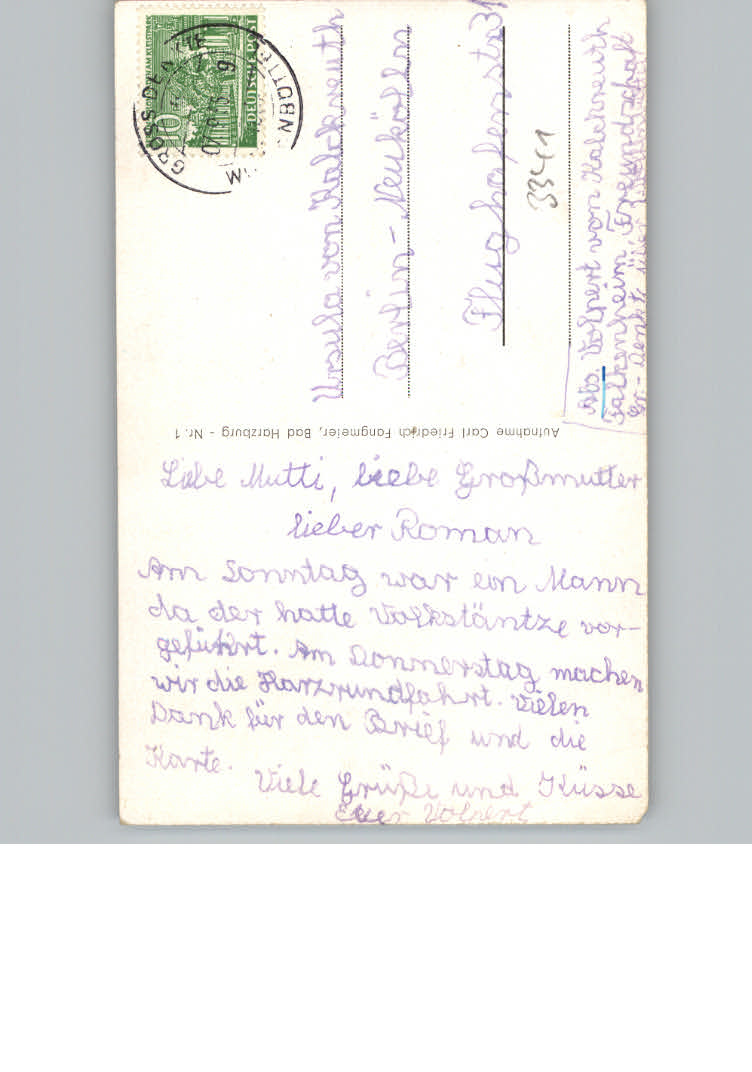 Liebe Mutti, liebe Großmutter
lieber Roman
Am Sonntag war ein Mann
da der hatte Volkstäntze vor-
geführt. Am Donnerstag machen
wir die Harzrundfahrt. Vielen
Dank für den Brief und die
Karte.
Viele Grüße und Küsse
Euer Volpert
Aufnahme Carl Friedrich Fangmeier, Bad Harzburg - Nr. 1
Ursula von Kalckreuth
Berlin-Neukölln
Flughafenstr. 31
3341
Abs. Volpert von Kalckreuth
Falkenheim, Freundschaft
Gr.-Denkte über
10
DEUTSCHE POST
GROSS DENKTE